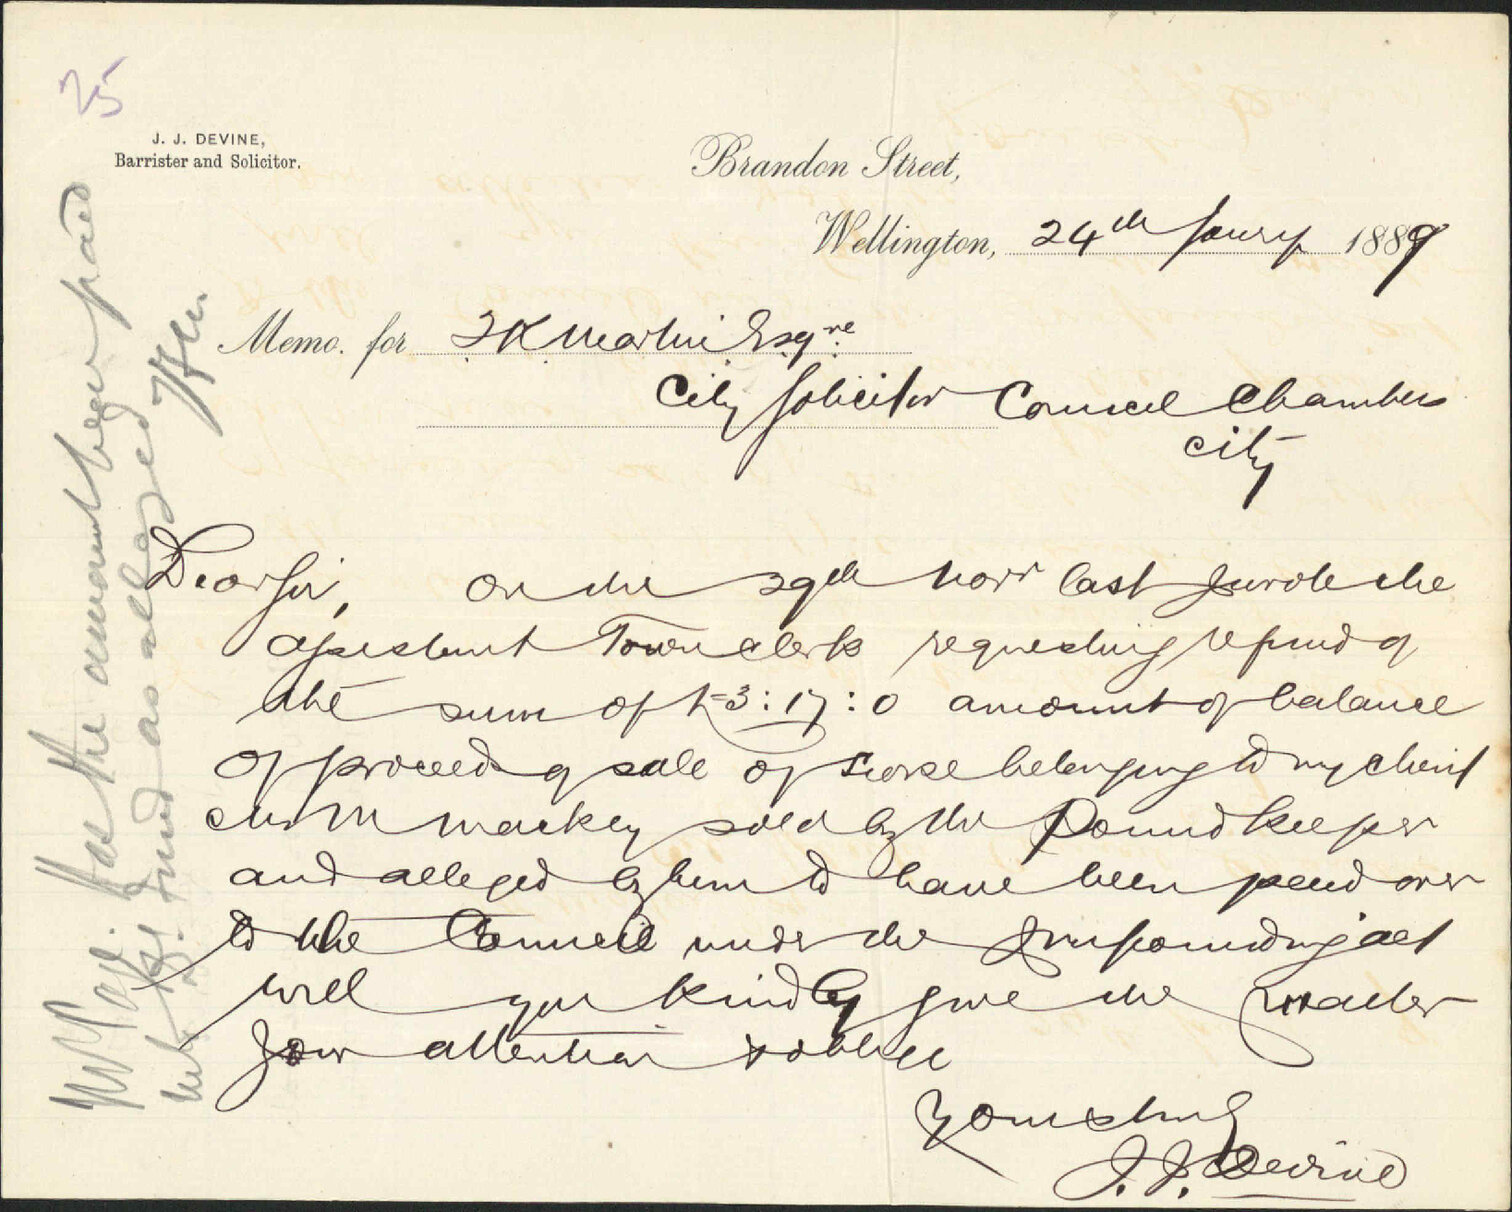 25
J. J. DEVINE,
Barrister and Solicitor.
Brandon Street,
Wellington, 24th Jany 1889
Memo. for T K Martin Esqre
City Solicitor Council Chambers
City
Dear Sir, On the 29th Novr last I wrote the
assistant Town Clerk requesting refund of
the sum of £3:17:0 amount of balance
of proceeds of sale of horse belonging to my client
M Mackey sold by the Poundkeeper
and alleged by him to have been paid over
to the Council under the Impounding act
will you kindly give the matter
your attention & oblige
Yours truly
J. J. Devine
Mr Page. Has the amount been paid
into the fund as alleged